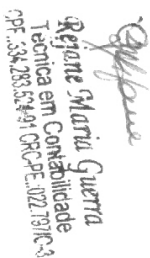 Rejane Maria Guerra
Técnica em Contabilidade
CPF.:534.283.524-91 CRC-PE.:022.797/C-3